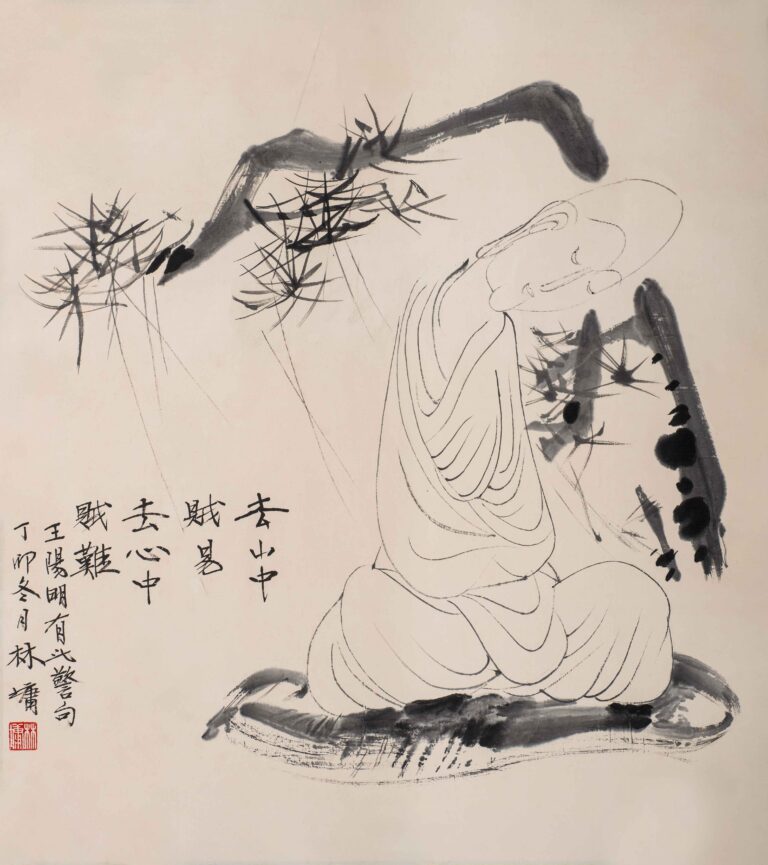 去山中
賊易
去心中
賊難
王陽明有此警句
丁卯冬月林墉
林墉